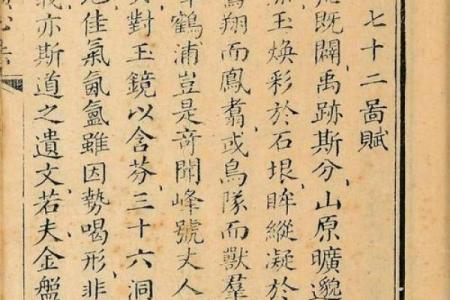 七十二啚賦
既闢禹跡斯分山原曠邈
玉煥彩於石垠眸縱凝於
翔而鳳翥或鳥隊而獸羣
鶴浦豈是奇聞峰號丈人
對玉鏡以含芬三十六洞
佳氣氤氳雖因勢喝形非
亦斯道之遺文若夫金盤